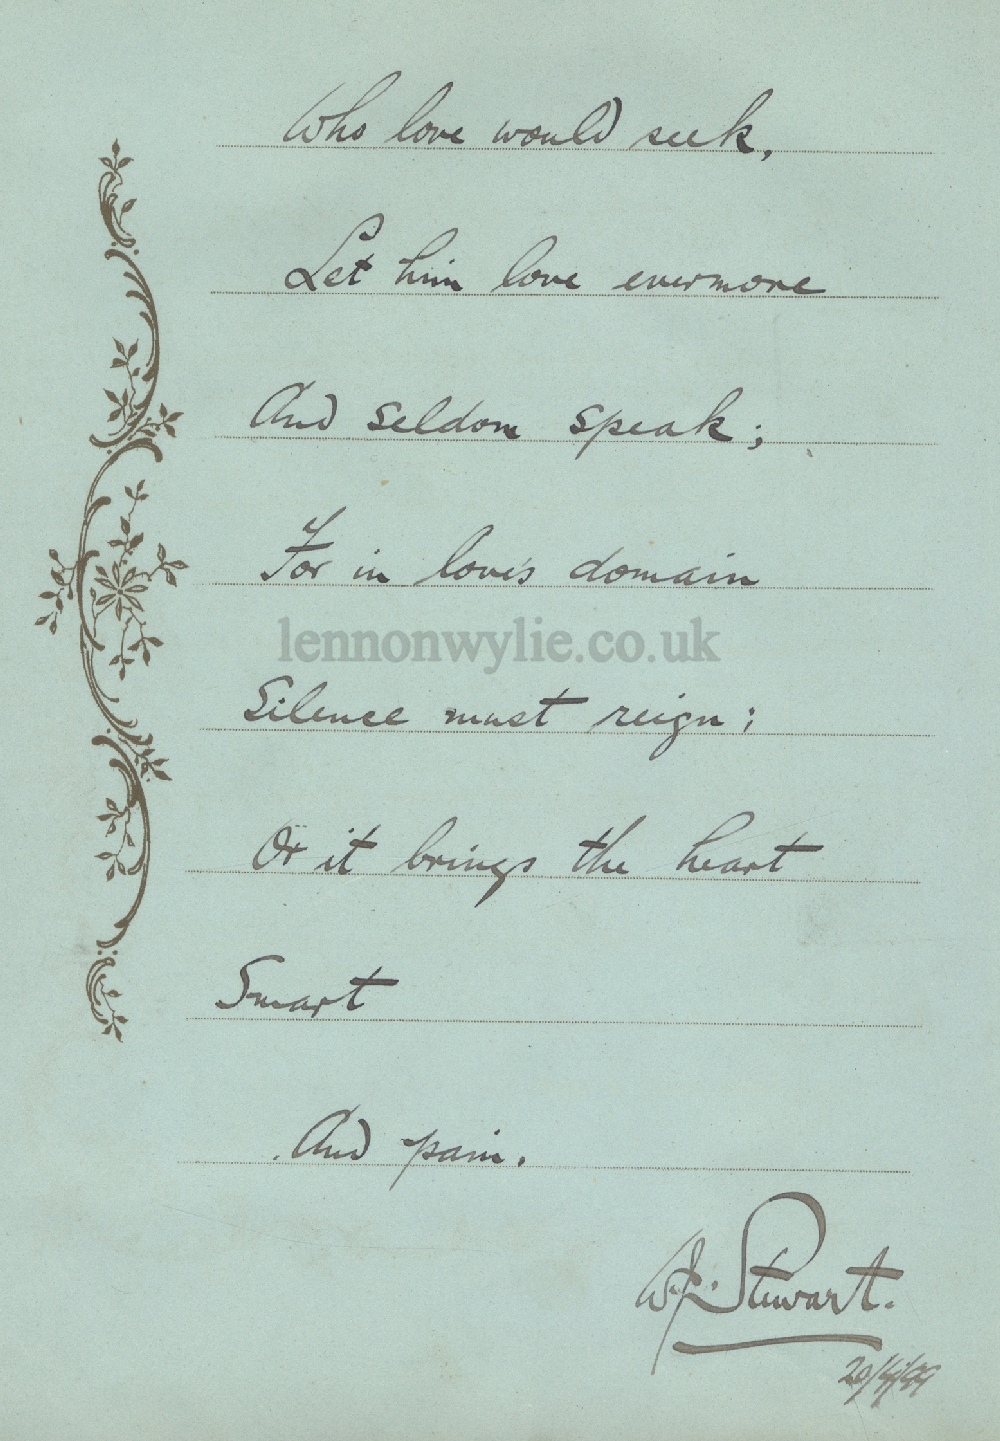 Who love would seek,
Let him love evermore
And seldom speak;
For in love's domain
lennonwylie.co.uk
Silence must reign;
Or it brings the heart
Smart
And pain.
W.J. Stewart.
20/4/99